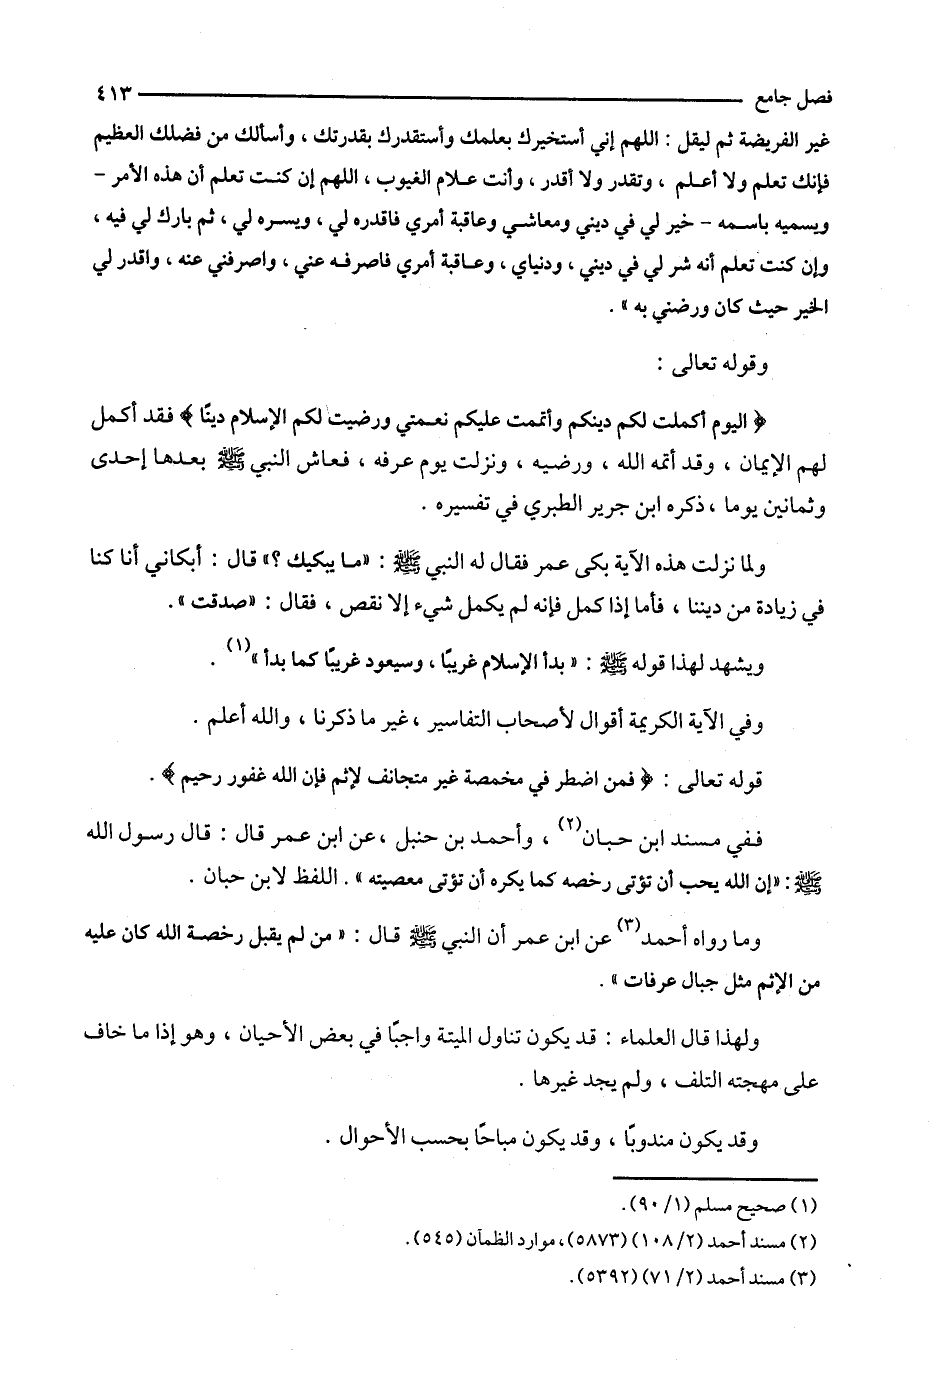 فصل جامع ٤١٣
غير الفريضة ثم ليقل : اللهم إني أستخيرك بعلمك وأستقدرك بقدرتك ، وأسألك من فضلك العظيم
فإنك تعلم ولا أعلم ، وتقدر ولا أقدر ، وأنت علام الغيوب ، اللهم إن كنت تعلم أن هذه الأمر –
ويسميه باسمه – خير لي في ديني ومعاشي وعاقبة أمري فاقدره لي ، ويسره لي ، ثم بارك لي فيه ،
وإن كنت تعلم أنه شر لي في ديني ، ودنياي ، وعاقبة أمري فاصرفه عني ، واصرفني عنه ، واقدر لي
الخير حيث كان ورضني به » .
وقوله تعالى :
﴿ اليوم أكملت لكم دينكم وأتممت عليكم نعمتي ورضيت لكم الإسلام دينًا ﴾ فقد أكمل
لهم الإيمان ، وقد أتمه الله ، ورضيه ، ونزلت يوم عرفه ، فعاش النبي ﷺ بعدها إحدى
وثمانين يوما ، ذكره ابن جرير الطبري في تفسيره .
ولما نزلت هذه الآية بكى عمر فقال له النبي ﷺ : «ما يبكيك ؟» قال : أبكاني أنا كنا
في زيادة من ديننا ، فأما إذا كمل فإنه لم يكمل شيء إلا نقص ، فقال : «صدقت» .
ويشهد لهذا قوله ﷺ : « بدأ الإسلام غريبًا ، وسيعود غريبًا كما بدأ »(١) .
وفي الآية الكريمة أقوال لأصحاب التفاسير ، غير ما ذكرنا ، والله أعلم .
قوله تعالى : ﴿ فمن اضطر في مخمصة غير متجانف لإثم فإن الله غفور رحيم ﴾ .
ففي مسند ابن حبان(٢) ، وأحمد بن حنبل ، عن ابن عمر قال : قال رسول الله
ﷺ : «إن الله يحب أن تؤتى رخصه كما يكره أن تؤتى معصيته » . اللفظ لابن حبان .
وما رواه أحمد(٣) عن ابن عمر أن النبي ﷺ قال : « من لم يقبل رخصة الله كان عليه
من الإثم مثل جبال عرفات » .
ولهذا قال العلماء : قد يكون تناول الميتة واجبًا في بعض الأحيان ، وهو إذا ما خاف
على مهجته التلف ، ولم يجد غيرها .
وقد يكون مندوبًا ، وقد يكون مباحًا بحسب الأحوال .
(١) صحيح مسلم (١/ ٩٠).
(٢) مسند أحمد (٢/ ١٠٨) (٥٨٧٣)، موارد الظمآن (٥٤٥).
(٣) مسند أحمد (٢/ ٧١) (٥٣٩٢).